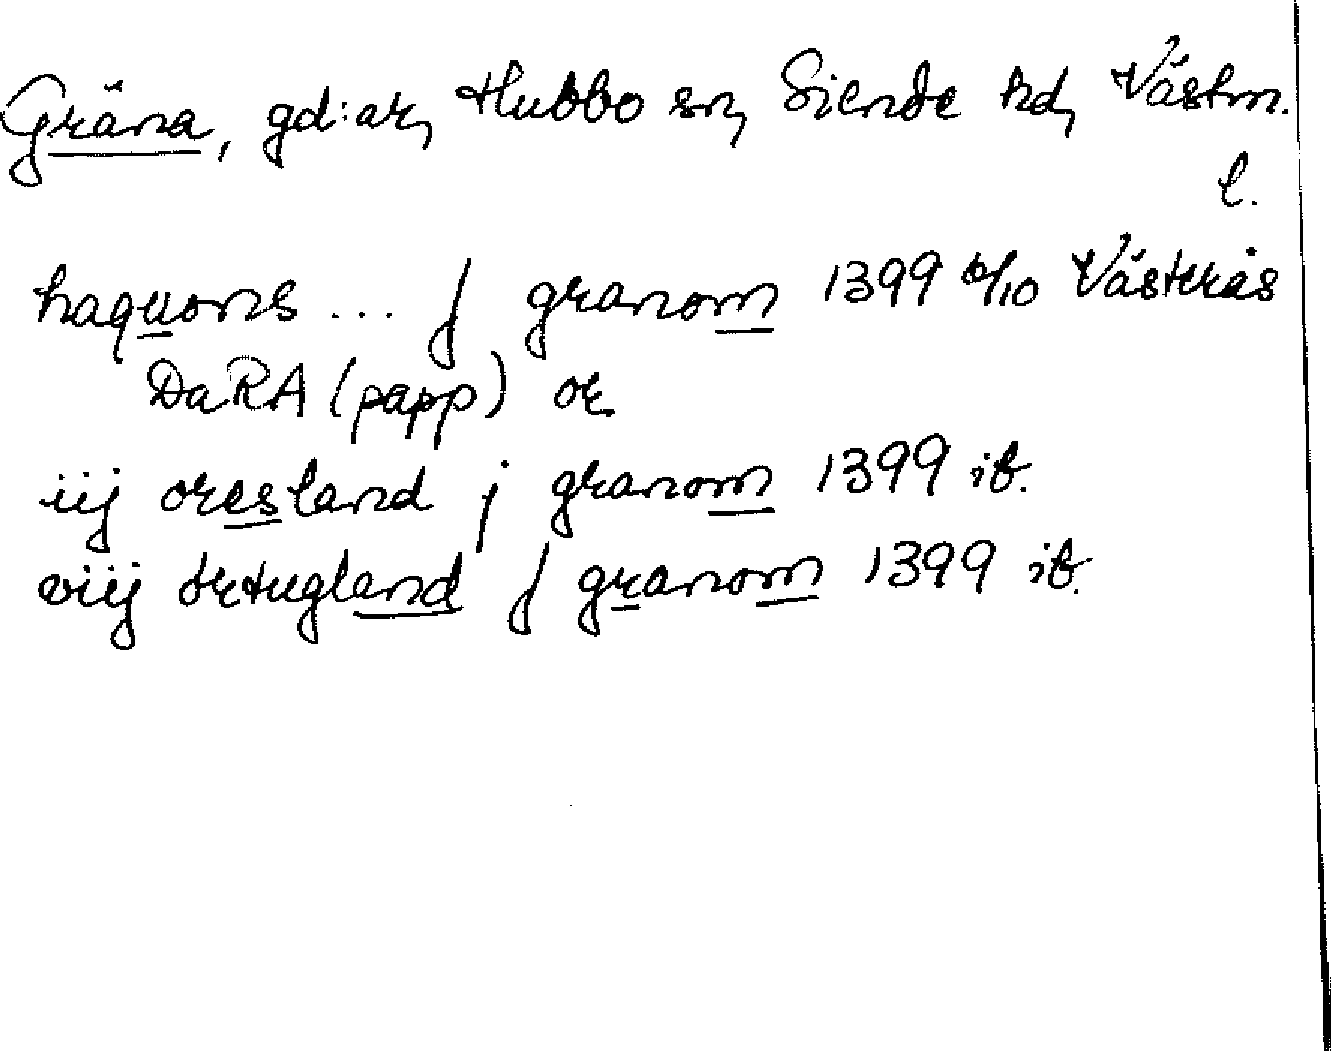 Gräna, gd:ar, Hubbo sn, Siende hd, Västm.
l.
haquons ... j granom 1399 6/10 Västerås
DaRA (papp) or
iij oresland j granom 1399 ib.
viij ortugland j granom 1399 ib.